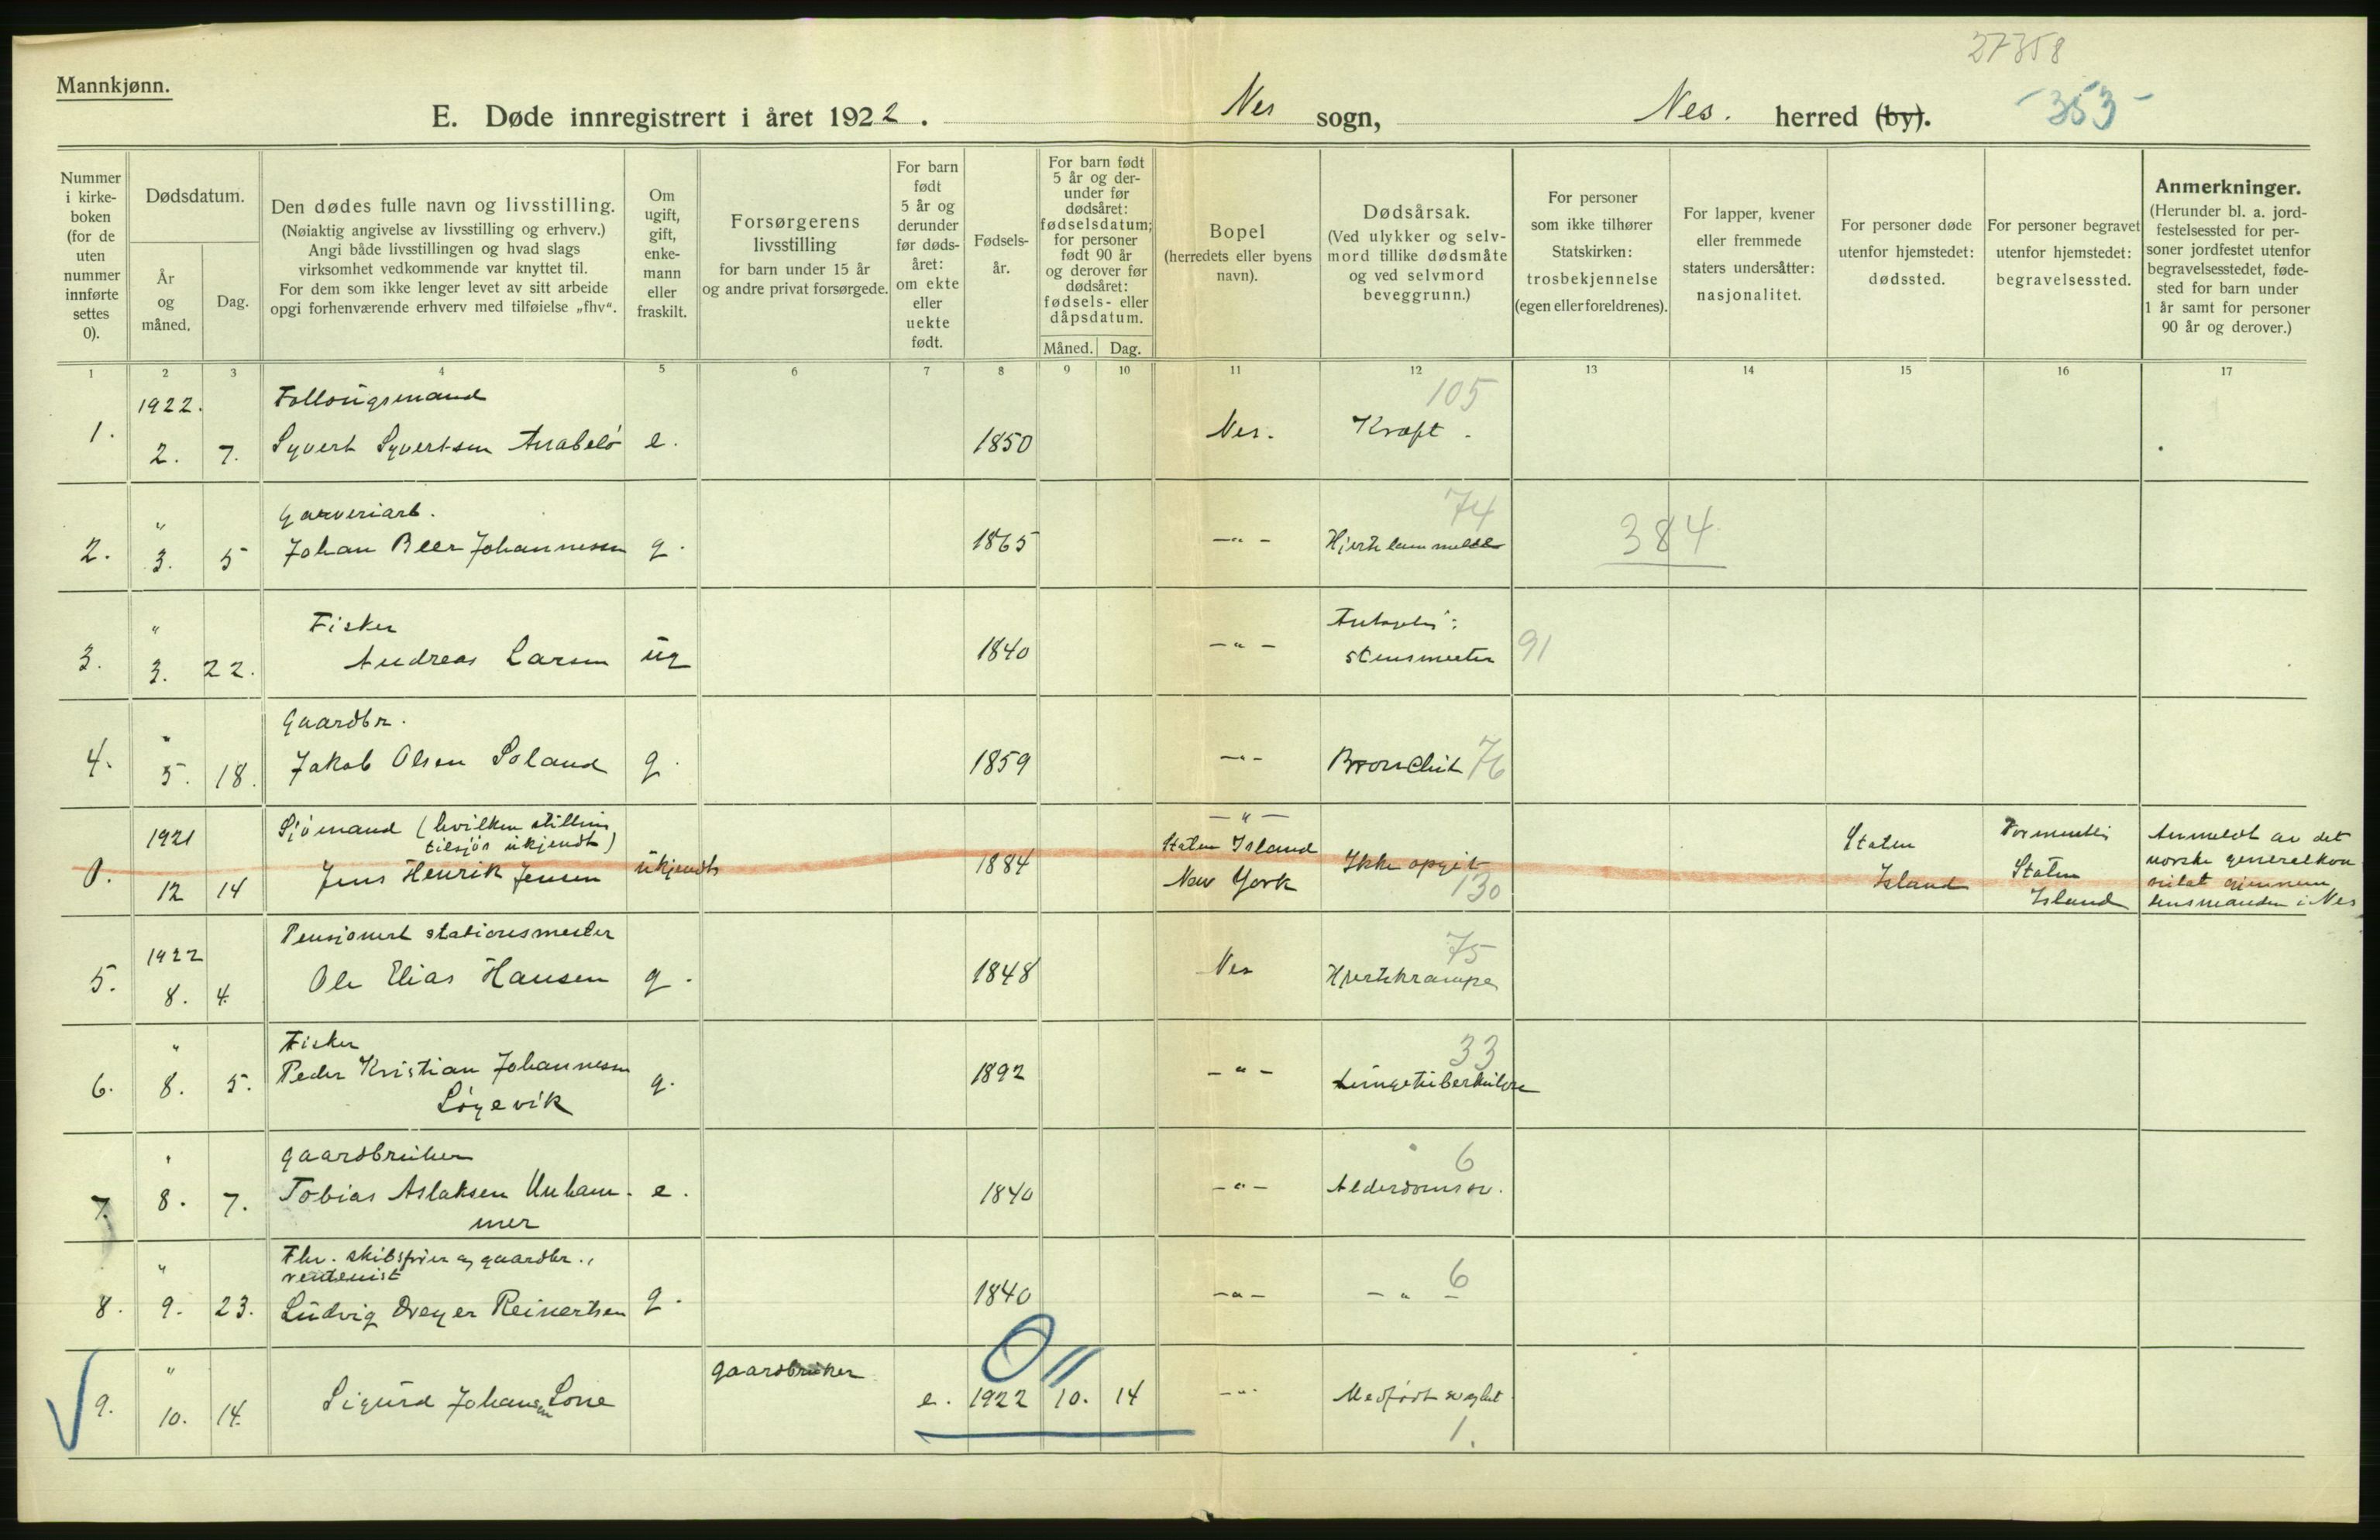 27358
Mannkjønn.
E. Døde innregistrert i året 1922. Nes sogn, Nes. herred (by). -353-
Nummer i kirke-boken (for de uten nummer innførte settes 0).
Dødsdatum.
År og måned.
Dag.
Den dødes fulle navn og livsstilling.
(Nøiaktig angivelse av livsstilling og erhverv.)
Angi både livsstillingen og hvad slags
virksomhet vedkommende var knyttet til.
For dem som ikke lenger levet av sitt arbeide
opgi forhenværende erhverv med tilføielse „fhv“.
Om ugift, gift, enke-mann eller fraskilt.
Forsørgerens
livsstilling
for barn under 15 år
og andre privat forsørgede.
For barn født 5 år og derunder før døds-året: om ekte eller uekte født.
Fødsels-år.
For barn født 5 år og der-under før dødsåret: fødselsdatum; for personer født 90 år og derover før dødsåret: fødsels- eller dåpsdatum.
Måned. Dag.
Bopel
(herredets eller byens
navn).
Dødsårsak.
(Ved ulykker og selv-
mord tillike dødsmåte
og ved selvmord
beveggrunn.)
For personer
som ikke tilhører
Statskirken:
trosbekjennelse
(egen eller foreldrenes).
For lapper, kvener
eller fremmede
staters undersåtter:
nasjonalitet.
For personer døde
utenfor hjemstedet:
dødssted.
For personer begravet
utenfor hjemstedet:
begravelsessted.
Anmerkninger.
(Herunder bl. a. jord-
festelsessted for per-
soner jordfestet utenfor
begravelsesstedet, føde-
sted for barn under
1 år samt for personer
90 år og derover.)
1 2 3 4 5 6 7 8 9 10 11 12 13 14 15 16 17
1922. 105
1. 2. 7. Syvert Syvertsen e. 1850 Nes. Kræft.
" Garveriarb. 74
2. 3. 5 Johan Beer Johannessen g. 1865 -"- 384
" Fisker
3. 3. 22. Andreas Larsen ug 1840 -"- 91
" Gaardbr.
4. 5. 18. Jakob Olsen Soland g. 1859 -"- Bronchit 76
1921 Sjømand (hvilken stilling
tilsjøs ukjendt) -"-
0. 12 14 Jens Henrik Jensen ukjendt 1884 Staten Island
New York Ikke opgit 130 Staten
Island Formentlig
Staten
Island Anmeldt av det
norske generalkon
sulat gjennem
lensmanden i Nes
Pensjonert stationsmester
1922 75
5. 8. 4. Ole Elias Hansen g. 1848 Nes Hjertekrampe
" Fisker 33
6. 8. 5. Peder Kristian Johannessen
Løgevik g. 1892 -"- Lungetuberkulose
" Gaardbruker 6
7. 8. 7. Tobias Aslaksen Unham-
mer e. 1840 -"-
" Fhv. skibsfører og gaardbr.,
rentenist 6
8. 9. 23. Ludvig Dreyer Reinertsen g. 1840 -"- -"-
" Gaardbruker
9. 10. 14. Sigurd Johansen Lone e. 1922 10. 14 -"- Medfødt svakhet
1.